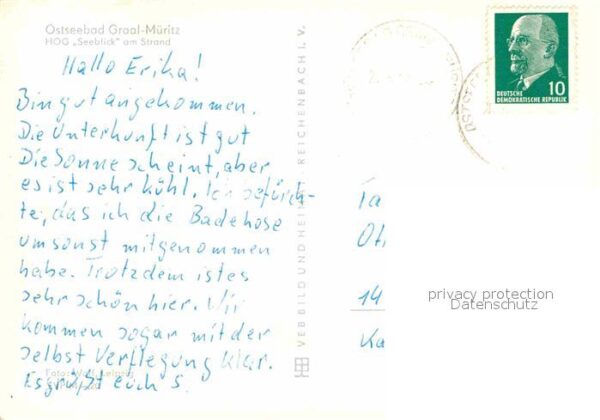 Ostseebad Graal-Müritz
HOG „Seeblick" am Strand
Hallo Erika!
Bin gut angekommen.
Die Unterkunft ist gut
Die Sonne scheint, aber
es ist sehr kühl. Ich befürch-
te, das ich die Badehose
umsonst mitgenommen
habe. Trotzdem ist es
sehr schön hier. Wir
kommen sogar mit der
selbst Verflegung klar.
Es grüßt euch S.
Foto: Wolf, Leipzig
VEB BILD UND HEIMAT REICHENBACH I. V.
10
DEUTSCHE
DEMOKRATISCHE REPUBLIK
Ta
14
Ka
privacy protection
Datenschutz